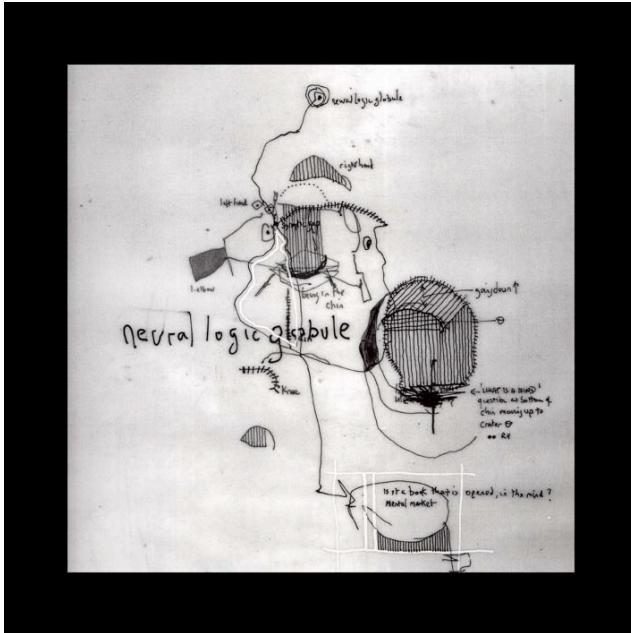 neural logic globule
right hand
left hand
being in the
chin
going down ↑
neural logic globule
Knee
← "WHAT IS A MIND"
question at bottom of
chin moving up to
crater
Is it a book that is opened, in the mind?
Mental market